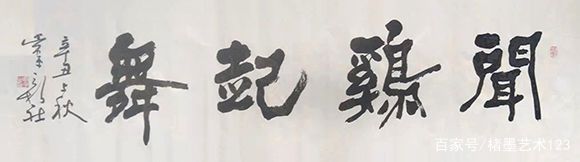 聞鷄起舞
辛丑秋
百家号/楮墨艺术123